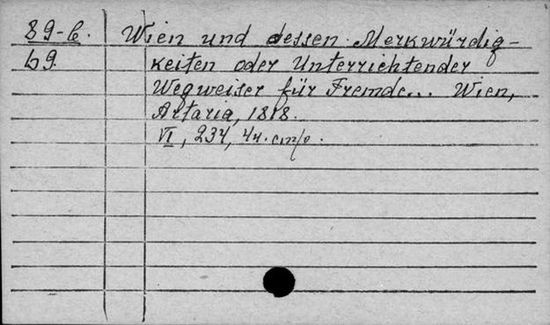 89-6. Wien und dessen Merkwürdig-
69. keiten oder Unterrichtender
Wegweiser für Fremde... Wien,
Artaria, 1818.
VI, 234, 44.